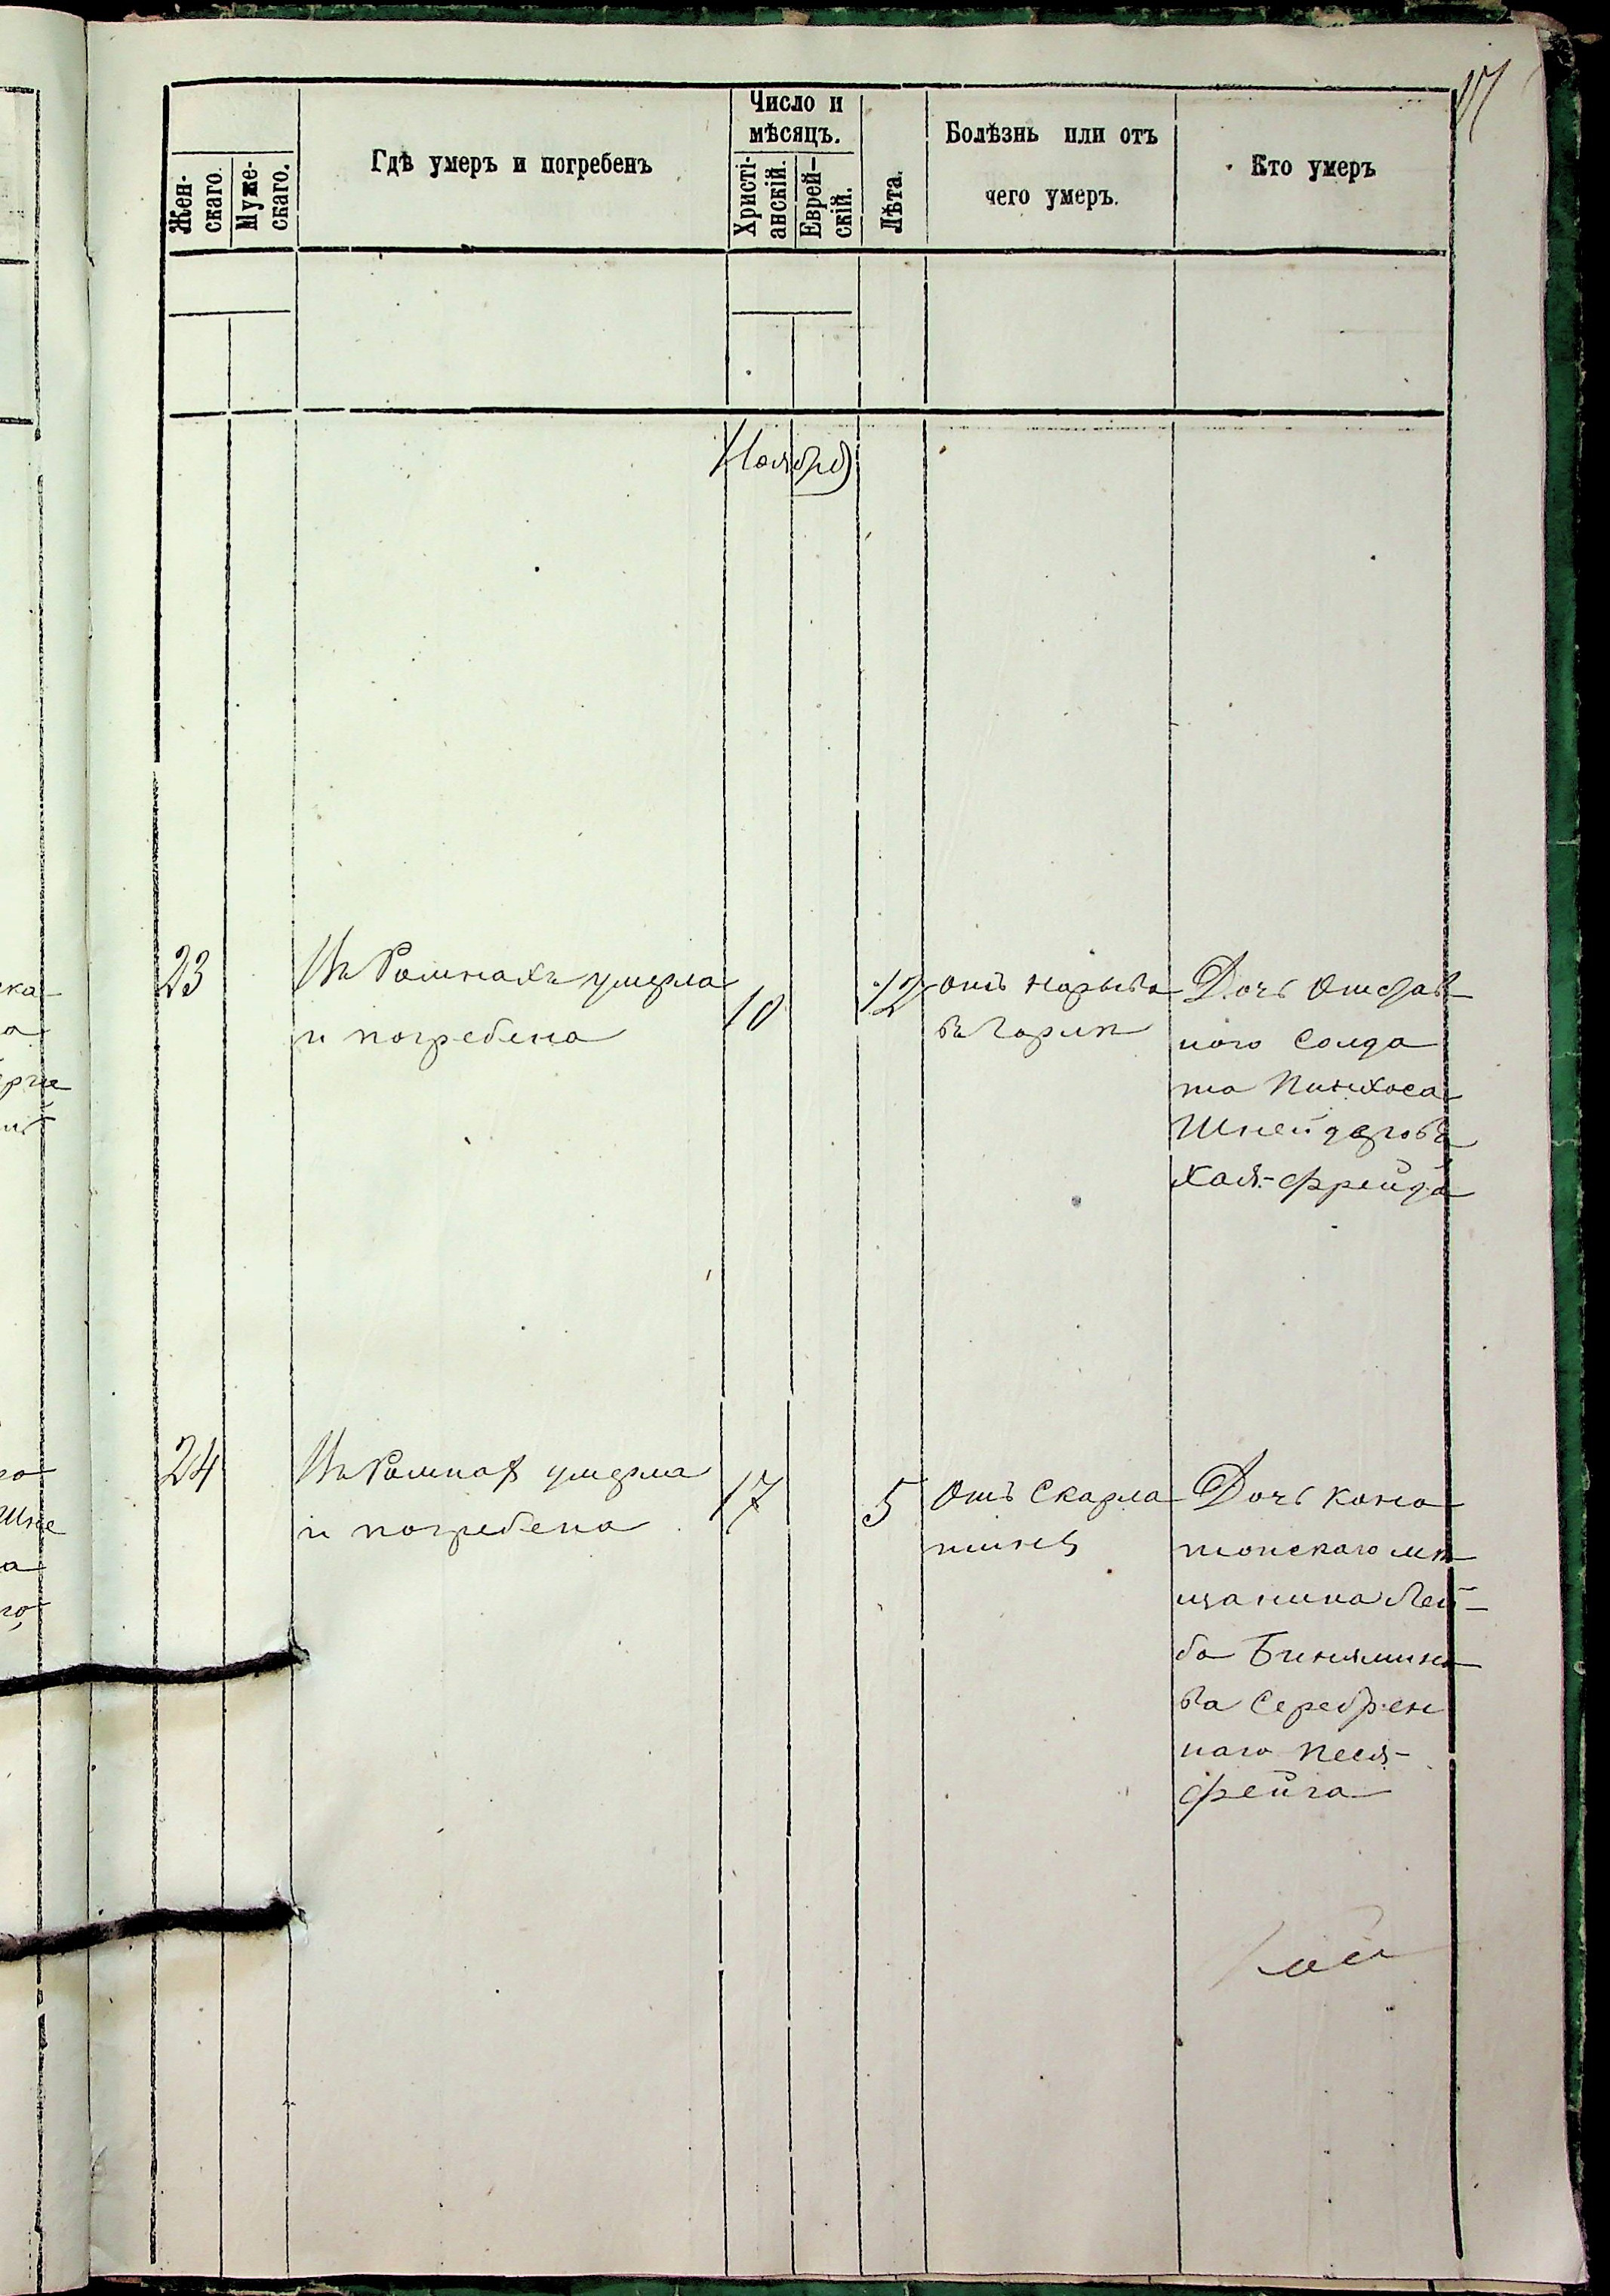 17
Жен-
скаго.
Муже-
скаго.
Гдѣ умеръ и погребенъ
Число и
мѣсяцъ.
Христі-
анскій.
Еврей-
скій.
Лѣта.
Болѣзнь или отъ
чего умеръ.
Кто умеръ
Ноябрь
23
Въ Ромнахъ умерла
и погребена
10
12
отъ нарыва
въ горлѣ
Дочь Отстав
ного Солда
та Пинхоса
Шнейдерова
Хая-Фрейда
24
Въ Ромнах умерла
и погребена
17
5
Отъ Скарла
тины
Дочь Коно
топскаго мѣ
щанина Лей-
ба Бинямино
ва Серебрен
наго Песя-
Фейга
ка
а
рги
го
Шне
а
го,